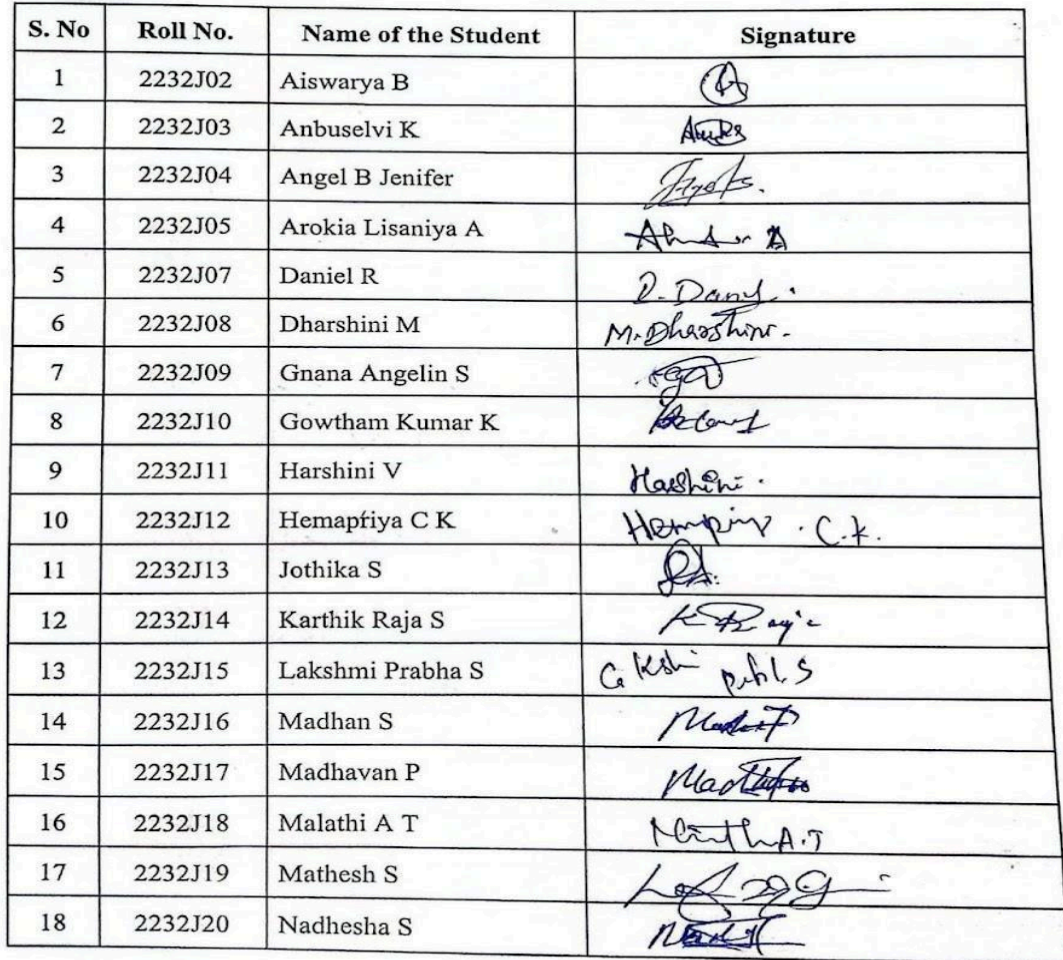 S. No Roll No. Name of the Student Signature
1 2232J02 Aiswarya B
2 2232J03 Anbuselvi K
3 2232J04 Angel B Jenifer
4 2232J05 Arokia Lisaniya A
5 2232J07 Daniel R
6 2232J08 Dharshini M M. Dharshini.
7 2232J09 Gnana Angelin S
8 2232J10 Gowtham Kumar K
9 2232J11 Harshini V Harshini.
10 2232J12 Hemapriya C K C.k.
11 2232J13 Jothika S
12 2232J14 Karthik Raja S
13 2232J15 Lakshmi Prabha S
14 2232J16 Madhan S
15 2232J17 Madhavan P
16 2232J18 Malathi A T A.T
17 2232J19 Mathesh S
18 2232J20 Nadhesha S